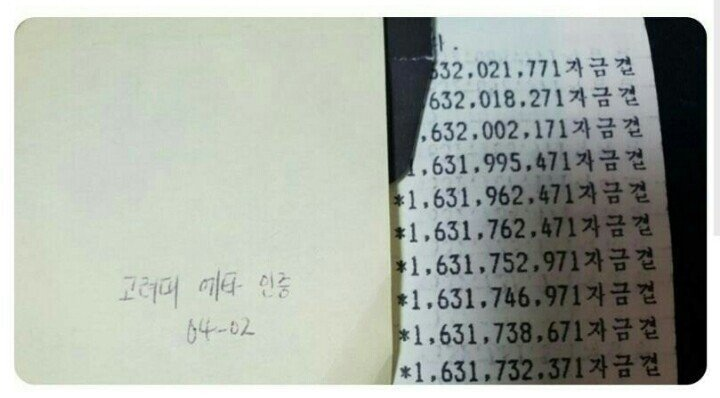 고려대 에타 인증
04-02
632,021,771자금결
632,018,271자금결
,632,002,171자금결
1,631,995,471자금결
*1,631,962,471자금결
*1,631,762,471자금결
*1,631,752,971자금결
*1,631,746,971자금결
*1,631,738,671자금결
*1,631,732,371자금결